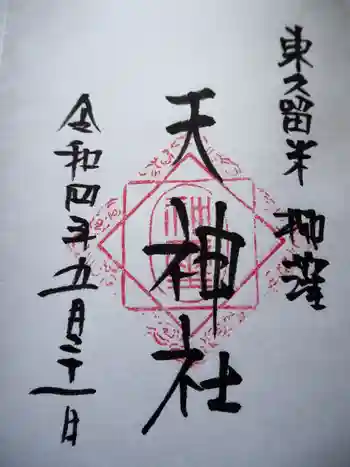 東久留米 柳窪
天神社
令和四年九月二十一日